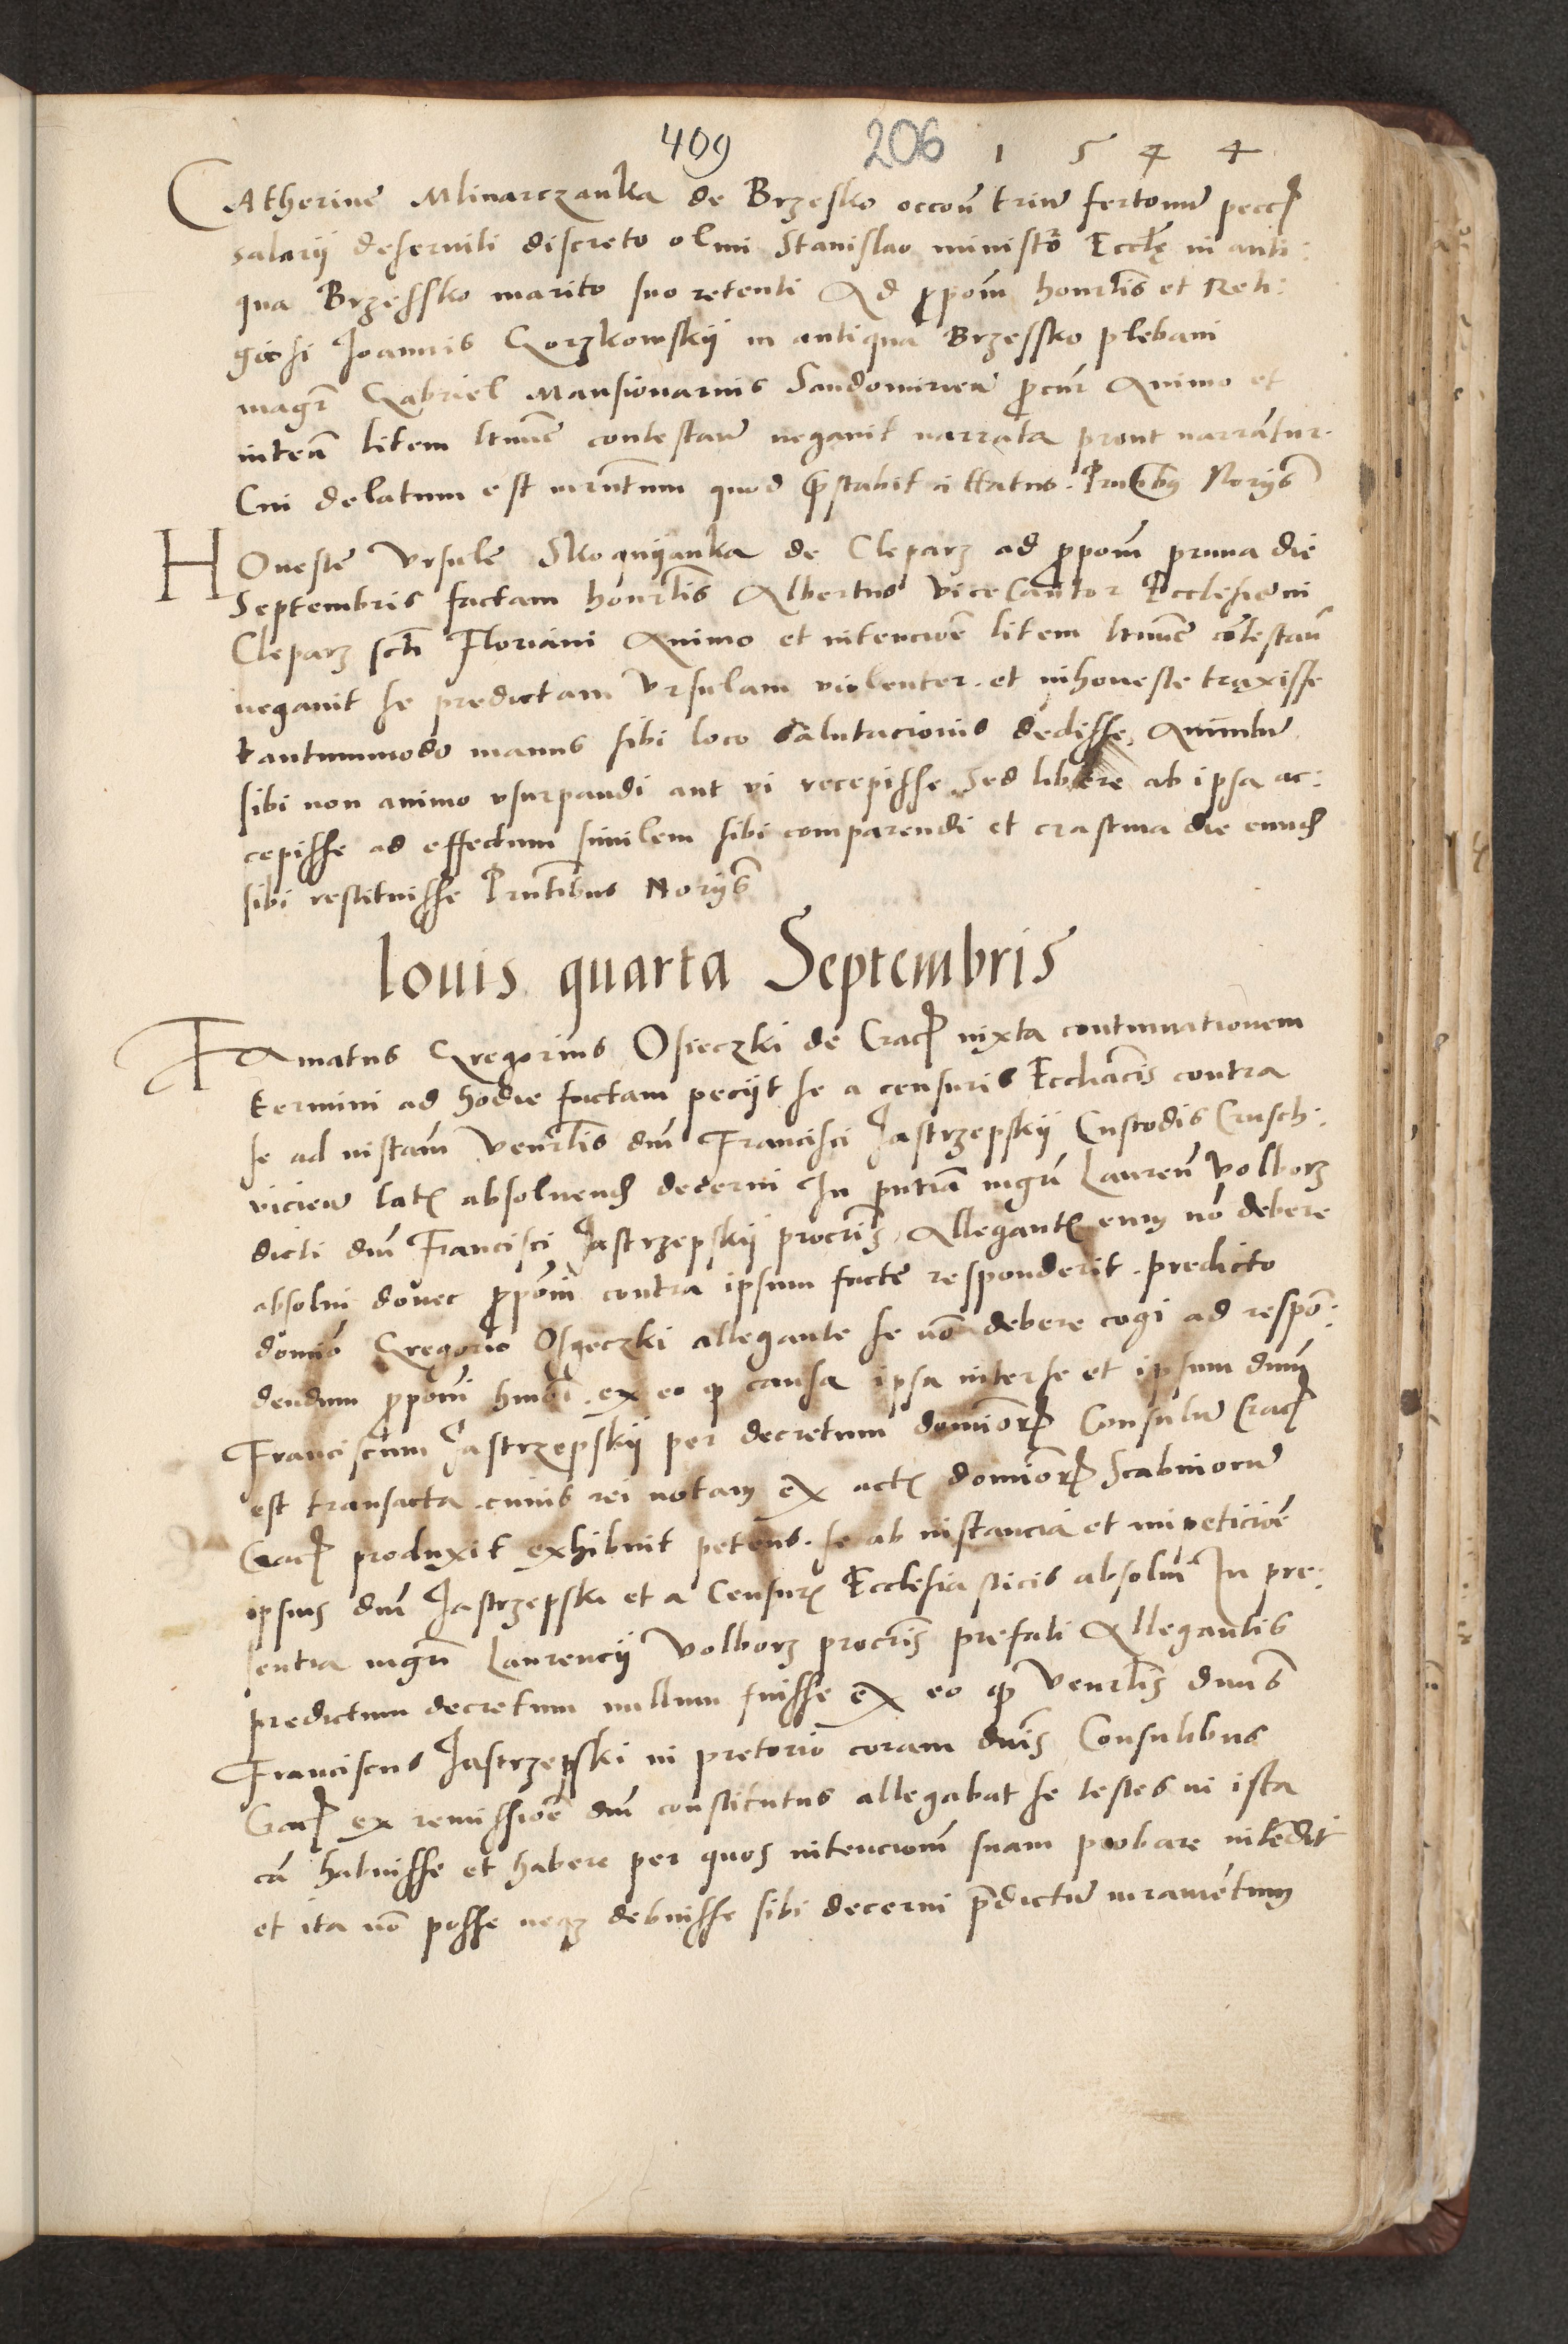 409 206 1 5 4 4
CAtherine Mlinarczanka de Brzesko occoē trium fertonum pecc
salarii deserviti discreto olim Stanislao ministro Eccle in anti:
qua Brzessko marito suo retenti Ad ppom honrlis et Reli:
giosi Joannis Gorzkowskij in antiqua Brzessko plebani
magr Gabriel Mansionarius Sandomirien pcur Animo et
inten litem ltime contestan negavit narrata prout narrantur.
Cui delatum est iurntum quod prestabit citatus. Prntibus Noriis
HOneste Ursule Skoqnijanka de Cleparz ad ppom prima die
Septembris factam honrlis Albertus vicecantor Ecclesie in
Cleparz scti Floriani Animo et intencione litem ltime contestan
negavit se predictam Ursulam violenter. et inhoneste traxisse
tantummodo manus sibi loco salutacionis dedisse, Annulum
sibi non animo usurpandi aut vi recepisse Sed libere ab ipsa ac:
cepisse ad effectum similem sibi comparendi et crastina die eundem
sibi restituisse Prntibus Noriis
Iouis quarta Septembris
FAmatus Gregorius Osieczki de Crac iuxta continuationem
termini ad hodie factam peciit se a censuris Eccliasticis contra
se ad instam Venrlis dni Francisci Jastrzepskij Custodis Crusch:
vicien latis absolvend decerni In pntia mgri Lauren Volborz
dicti dni Francisci Jastrzepskij procris, Allegantis eum no debere
absolvi donec ppom contra ipsum facte responderit. predicto
domino Gregorio Osyeczki allegante se non debere cogi ad respon:
dendum ppom hmoi. ex eo q causa ipsa inter se et ipsum dnum
Franciscum Jastrzepskij per decretum dominor Consulum Crac
est transacta. cuius rei notam ex actis dominor Scabinorum
Crac produxit exhibuit petens. se ab instancia et impeticione
ipsius dni Jastrzepski et a Censuris Ecclesiasticis absolvi In pre:
sentia mgri Laurencij Volborz procris prefati Allegantis
predictum decretum nullum fuisse ex eo q Venrlis dnus
Franciscus Jastrzepski in pretorio coram dnis Consulibus
Crac ex remissione dni constitutus allegabat se testes in ista
ca habuisse et habere per quos intencionem suam probare intendit
et ita non posse neq debuisse sibi decerni predictum iuramentum